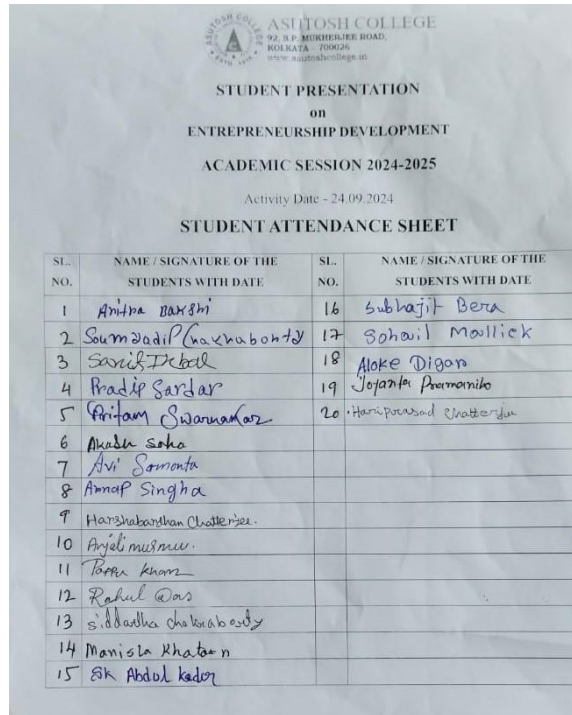 ASUTOSH COLLEGE
92, S.P. MUKHERJEE ROAD,
KOLKATA - 700026
www.asutoshcollege.in
STUDENT PRESENTATION
on
ENTREPRENEURSHIP DEVELOPMENT
ACADEMIC SESSION 2024-2025
Activity Date - 24.09.2024
STUDENT ATTENDANCE SHEET
SL. NO. NAME / SIGNATURE OF THE STUDENTS WITH DATE SL. NO. NAME / SIGNATURE OF THE STUDENTS WITH DATE
1 Bakshi 16 Subhajit Bera
2 17 Sohail Mallick
3 18 Aloke Digar
4 Pradip Sardar 19 Pramanik
5 Pritam Swarnakar 20 Hariprasad Chatterjee
6 Akash Saha
7 Avi Samanta
8 Arnap Singha
9 Harshabardhan Chatterjee.
10 Anjali murmu.
11 Pappu Khan
12 Rahul Das
13 Siddartha chakraborty
14 Manisha Khatoon
15 SK Abdul kador